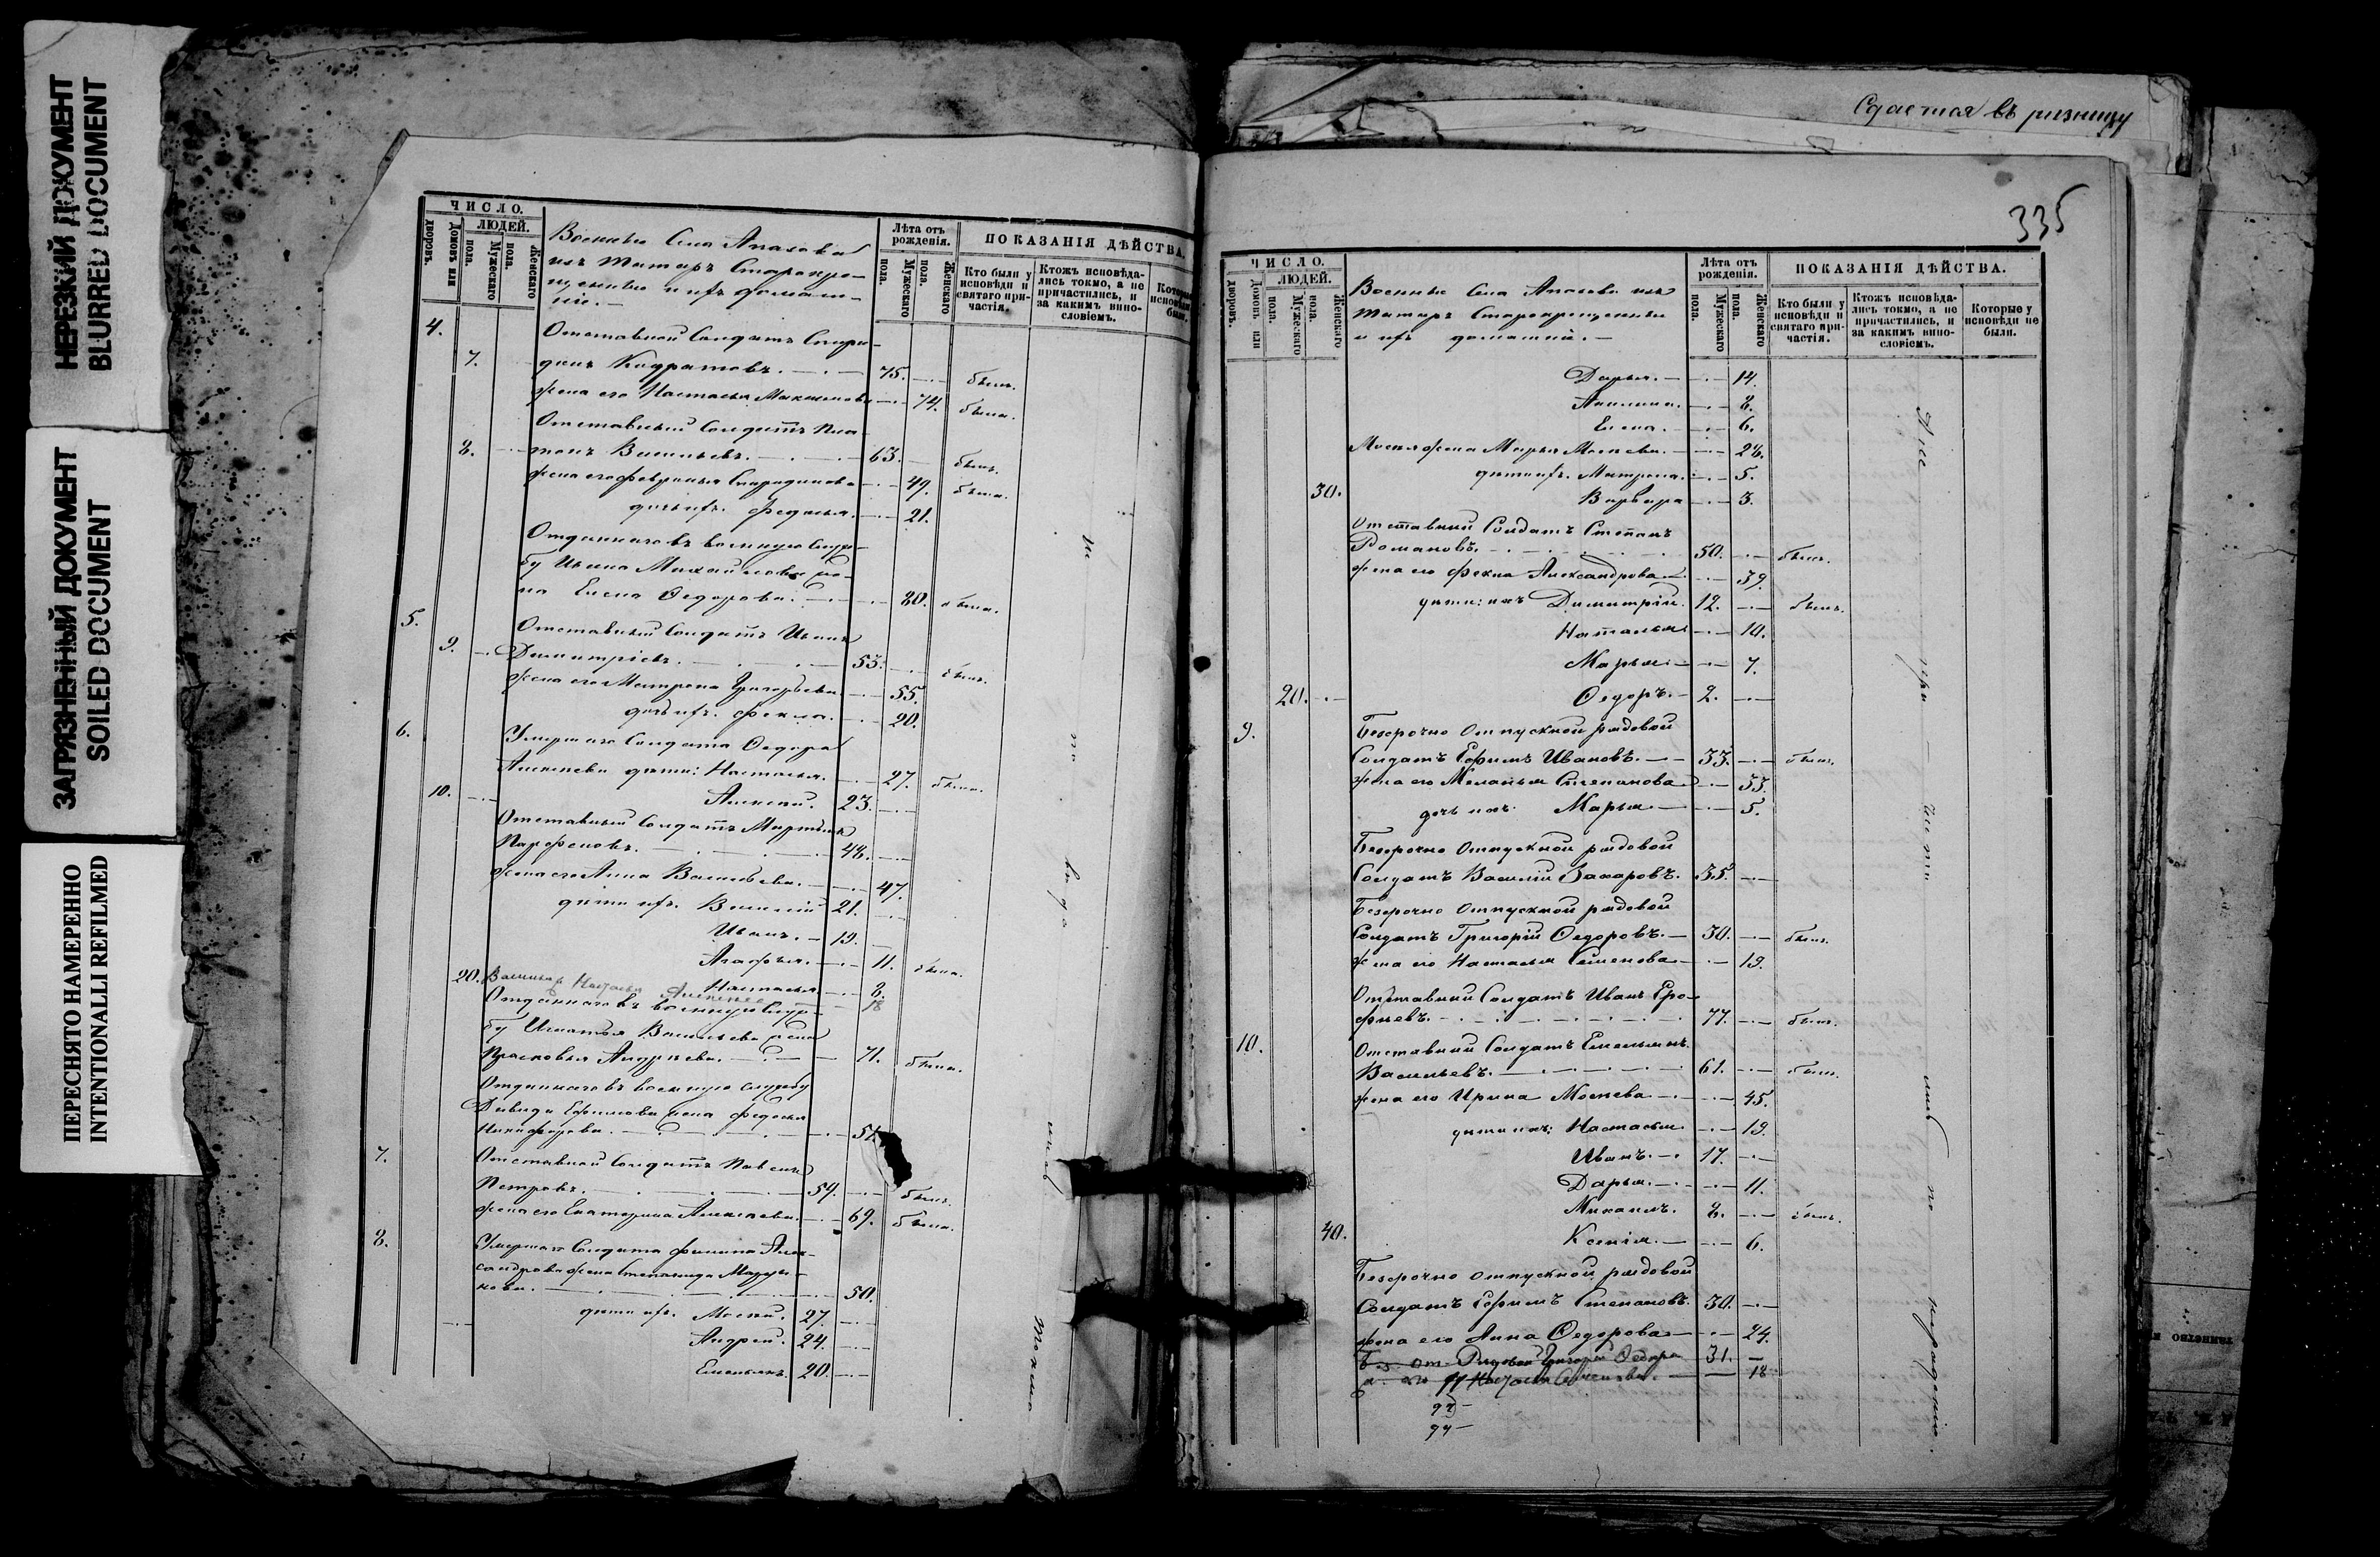 НЕРЕЗКИЙ ДОКУМЕНТ
BLURRED DOCUMENT
ЗАГРЯЗНЕННЫЙ ДОКУМЕНТ
SOILED DOCUMENT
ПЕРЕСНЯТО НАМЕРЕННО
INTENTIONALLI REFILMED
ЧИСЛО.
ЛЮДЕЙ.
дворовъ.
Домовъ или
Мужескаго пола.
Женскаго пола.
Военные Села Апазова
изъ татаръ Старокре-
щенные и ихъ домаш-
ніе. —
Лѣта отъ рожденія.
Мужескаго пола.
Женскаго пола.
ПОКАЗАНІЯ ДѢЙСТВА.
Кто были у исповѣди и святаго при-частія.
Ктожъ исповѣда-лись токмо, а не причастились, и за какимъ вино-словіемъ.
4.
Отставной Солдатъ Спири-
7. донъ Кодратовъ. — 75. былъ.
жена его Настасья Максимова 74. была.
Отставный Солдатъ Пла-
8. тонъ Васильевъ. — 63. былъ.
жена его Февронья Спиридонова 49. была.
дочь ихъ. Федосья. — 21.
Отданнаго въ военную служ-
бу Ивана Михайлова же-
на Елена Федорова. — 80. была.
5. Отставный Солдатъ Иванъ
9. Димитріевъ. — 53. былъ.
жена его Матрона Григорьева 55.
дочь ихъ. Фекла. — 20.
6. Умершаго Солдата Федора
Алексѣева дѣти: Настасья. — 27. была.
10. Алексѣй. 23.
Отставный Солдатъ Мартынъ
Парфеновъ. — 48.
жена его Анна Васильева. — 47.
дѣти ихъ. Василій 21.
Иванъ. — 19.
Агафья. — 11. была.
20. Настасья — 8.
18
Отданнаго въ военную служ-
бу Игнатья Васильева жена
Прасковья Андреева. — 71. была.
Отданнаго въ военную службу
Давида Ефимова жена Федосья
Никифорова. —
7. Отставной Солдатъ Павелъ
Петровъ. — 59. былъ.
жена его Екатерина Алексѣева. 69. была.
8. Умершаго Солдата Филипа Алек-
сандрова жена Степанида
50.
дѣти ихъ. Мосей. 27.
Андрей. 24.
Емельянъ. 20.
Сдается въ ризницу
335
ЧИСЛО.
ЛЮДЕЙ.
дворовъ.
Домовъ или
Мужескаго пола.
Женскаго пола.
Военные Села Апазова изъ
татаръ Старокрещенные
и ихъ домашніе. —
Лѣта отъ рожденія.
Мужескаго пола.
Женскаго пола.
ПОКАЗАНІЯ ДѢЙСТВА.
Кто были у исповѣди и святаго при-частія.
Ктожъ исповѣда-лись токмо, а не причастились, и за какимъ вино-словіемъ.
Которые у исповѣди не были.
Дарья. — 14.
8.
Елена. — 6.
Мосея жена Марья Мосеева. — 28.
дѣти ихъ. Матрона. 5.
30. Варвара 3.
Отставный Солдатъ Степанъ
Романовъ. — 50. былъ.
жена его Фекла Александрова — 39.
дѣти ихъ Димитрій. 12. былъ.
Наталья 10.
Марья — 7.
20. Федоръ. — 2.
9. Безсрочно отпускной рядовой
Солдатъ Ефимъ Ивановъ. — 33. былъ.
жена его Меланья Степанова 33.
дочь ихъ Марья — 5.
Безсрочно отпускной рядовой
Солдатъ Василій Захаровъ. 35.
Безсрочно отпускной рядовой
Солдатъ Григорій Федоровъ. — 30. былъ.
жена его Настасья Семенова — 19.
Отставный Солдатъ Иванъ Еро-
фѣевъ. — 77. былъ.
10. Отставный Солдатъ Емельянъ
Васильевъ. — 61. былъ.
жена его Ирина Мосеева — 45.
дѣти ихъ: Настасья — 19.
Иванъ. — 17.
Дарья. — 11.
Михаилъ. 8. былъ.
40. Ксенія. — 6.
Безсрочно отпускной рядовой
Солдатъ Ефимъ Степановъ. 30.
жена его Анна Федорова — 24.
Рядовой Григорій Федоров 31.
Настасья Семенова. — 18